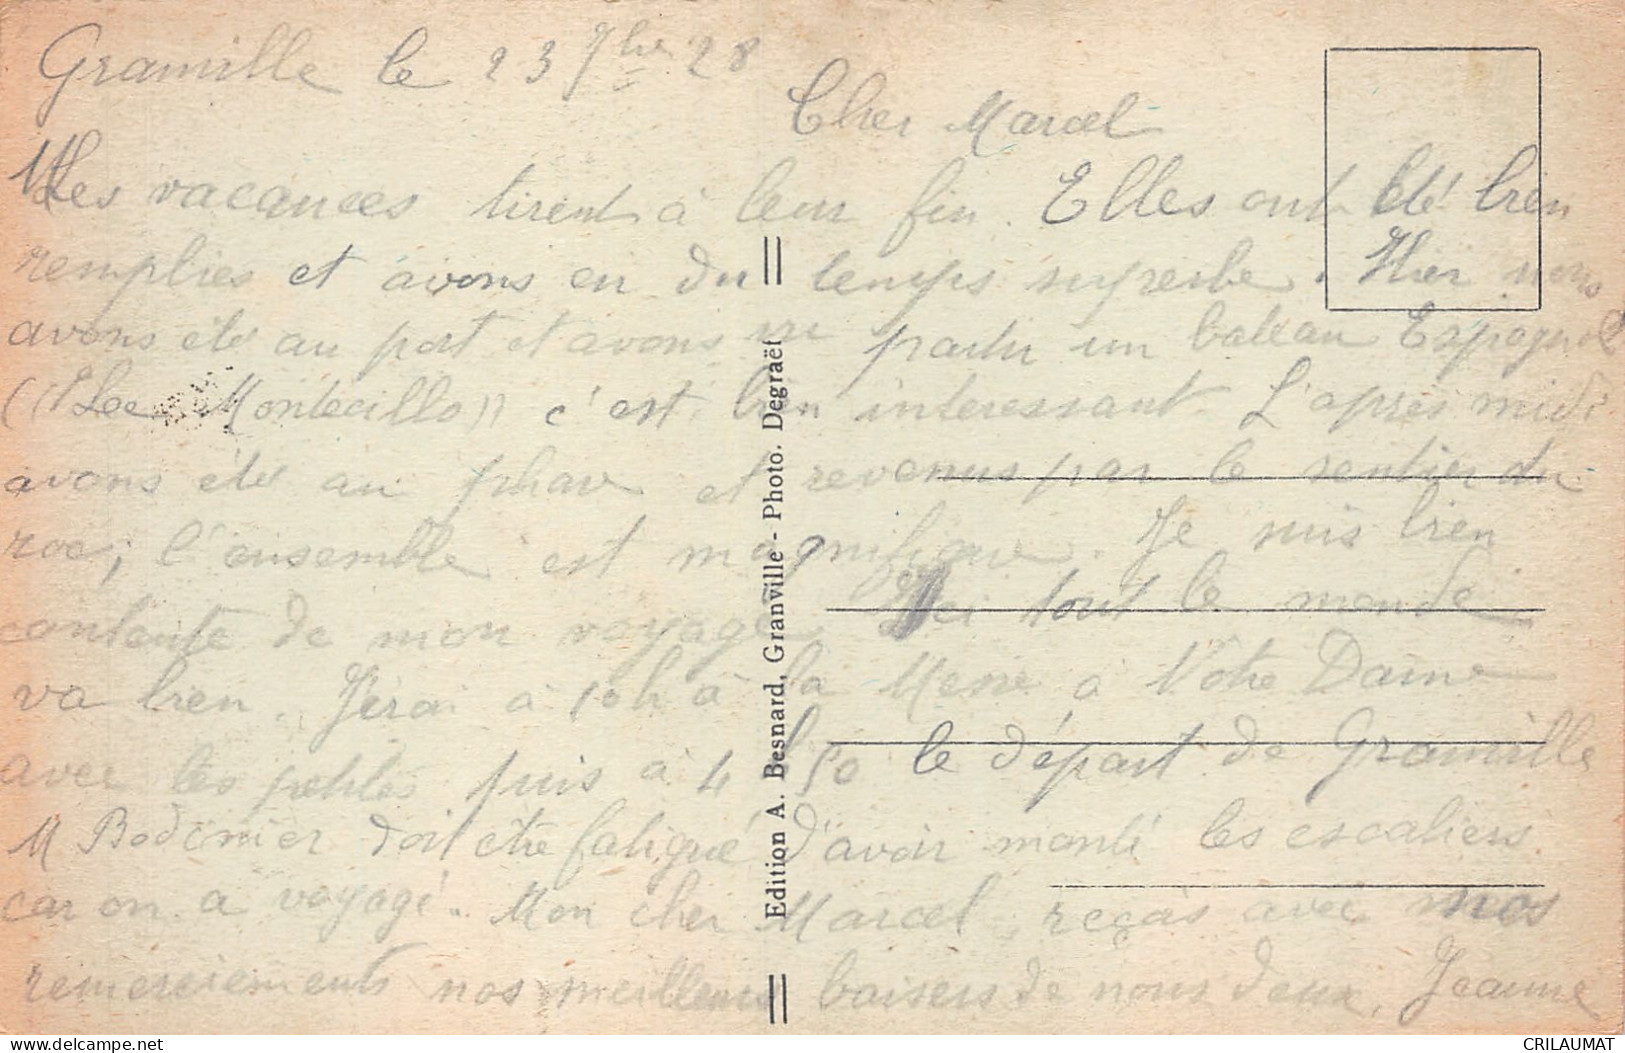 Granville le 23 7bre 28
Cher Marcel
Les vacances tirent à leur fin. Elles ont été bien
remplies et avons eu du temps superbe. Hier nous
avons été au port et avons vu partir un bateau Espagnol
( Montecillo)) c'est bien interessant L'après midi
avons été au phare et revenus par le sentier du
roc, l'ensemble est magnifique. Je suis bien
contente de mon voyage. Ici tout le monde
va bien. J'irai à 10h à la Messe à Notre Dame
avec les petites puis à 4 h 50 le départ de Granville
M Bodinier doit être fatigué d'avoir monté les escaliers
car on a voyagé. Mon cher Marcel, reçois avec nos
remerciements nos meilleurs baisers de nous deux, Jeanne
Edition A. Besnard, Granville - Photo. Degraët
CRILAUMAT